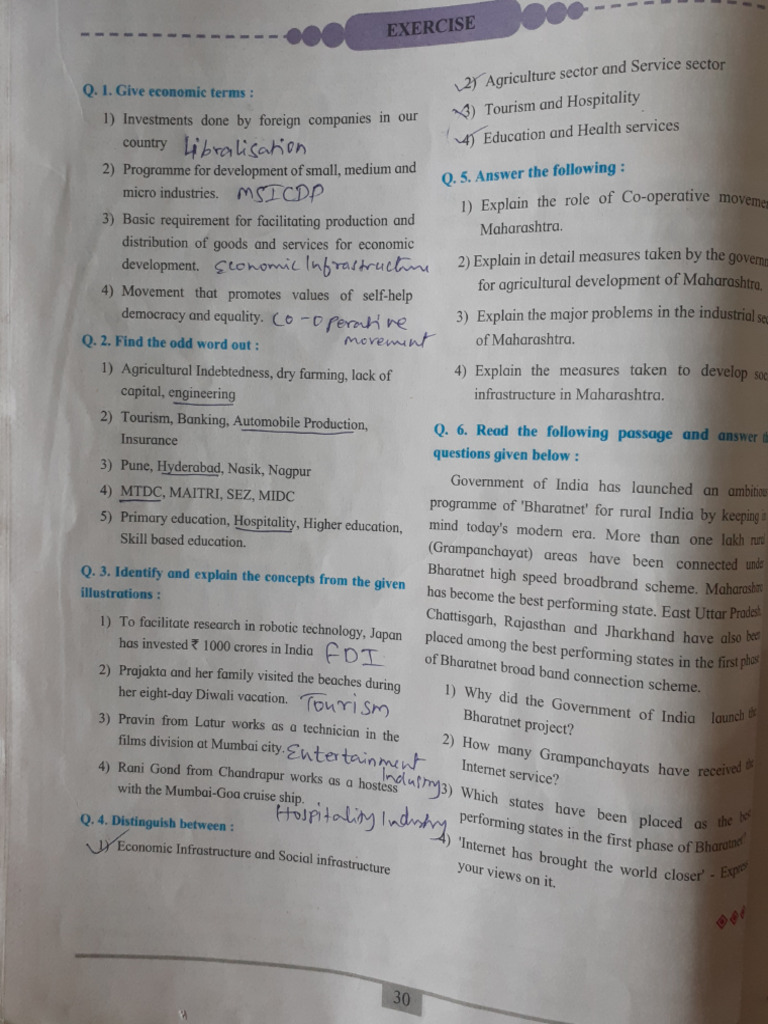 EXERCISE
Q. 1. Give economic terms :
1) Investments done by foreign companies in our
country Libralisation
2) Programme for development of small, medium and
micro industries. MSICDP
3) Basic requirement for facilitating production and
distribution of goods and services for economic
development. Economic Infrastructure
4) Movement that promotes values of self-help
democracy and equality. Co-operative
movement
Q. 2. Find the odd word out :
1) Agricultural Indebtedness, dry farming, lack of
capital, engineering
2) Tourism, Banking, Automobile Production,
Insurance
3) Pune, Hyderabad, Nasik, Nagpur
4) MTDC, MAITRI, SEZ, MIDC
5) Primary education, Hospitality, Higher education,
Skill based education.
Q. 3. Identify and explain the concepts from the given
illustrations :
1) To facilitate research in robotic technology, Japan
has invested ₹ 1000 crores in India FDI
2) Prajakta and her family visited the beaches during
her eight-day Diwali vacation. Tourism
3) Pravin from Latur works as a technician in the
films division at Mumbai city. Entertainment
Industry
4) Rani Gond from Chandrapur works as a hostess
with the Mumbai-Goa cruise ship.
Hospitality Industry
Q. 4. Distinguish between :
1) Economic Infrastructure and Social infrastructure
2) Agriculture sector and Service sector
3) Tourism and Hospitality
4) Education and Health services
Q. 5. Answer the following :
1) Explain the role of Co-operative movemen
Maharashtra.
2) Explain in detail measures taken by the governm
for agricultural development of Maharashtra.
3) Explain the major problems in the industrial sec
of Maharashtra.
4) Explain the measures taken to develop soc
infrastructure in Maharashtra.
Q. 6. Read the following passage and answer th
questions given below :
Government of India has launched an ambitious
programme of 'Bharatnet' for rural India by keeping in
mind today's modern era. More than one lakh rural
(Grampanchayat) areas have been connected under
Bharatnet high speed broadbrand scheme. Maharashtra
has become the best performing state. East Uttar Pradesh,
Chattisgarh, Rajasthan and Jharkhand have also been
placed among the best performing states in the first phase
of Bharatnet broad band connection scheme.
1) Why did the Government of India launch the
Bharatnet project?
2) How many Grampanchayats have received the
Internet service?
3) Which states have been placed as the best
performing states in the first phase of Bharatnet?
4) 'Internet has brought the world closer' - Express
your views on it.
30